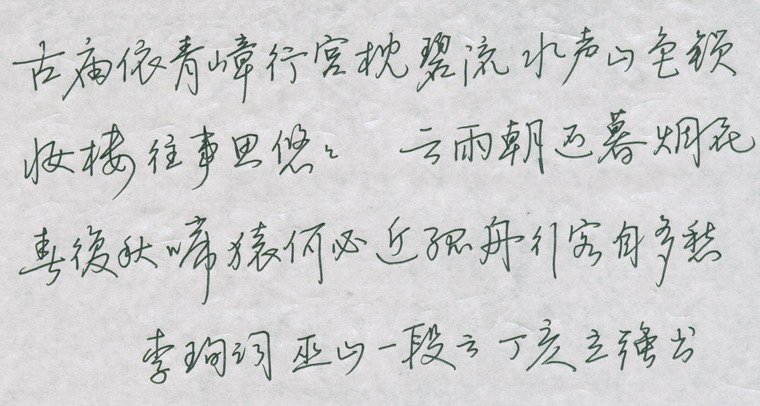 古庙依青嶂行宫枕碧流水声山色锁
妆楼往事思悠々 云雨朝还暮烟花
春復秋啼猿何必近孤舟行客自多愁
李珣词巫山一段云丁亥立强书